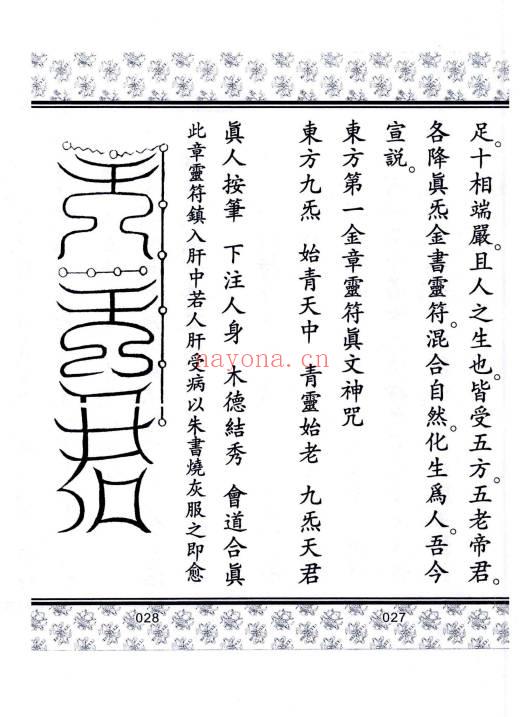 足。十相端嚴。且人之生也。皆受五方。五老帝君。
各降眞炁金書靈符。混合自然。化生爲人。吾今
宣說。
東方第一金章靈符眞文神咒
東方九炁 始青天中 青靈始老 九炁天君
眞人按筆 下注人身 木德結秀 會道合眞
此章靈符鎮入肝中若人肝受病以朱書燒灰服之即愈
nayona.cn
028
027